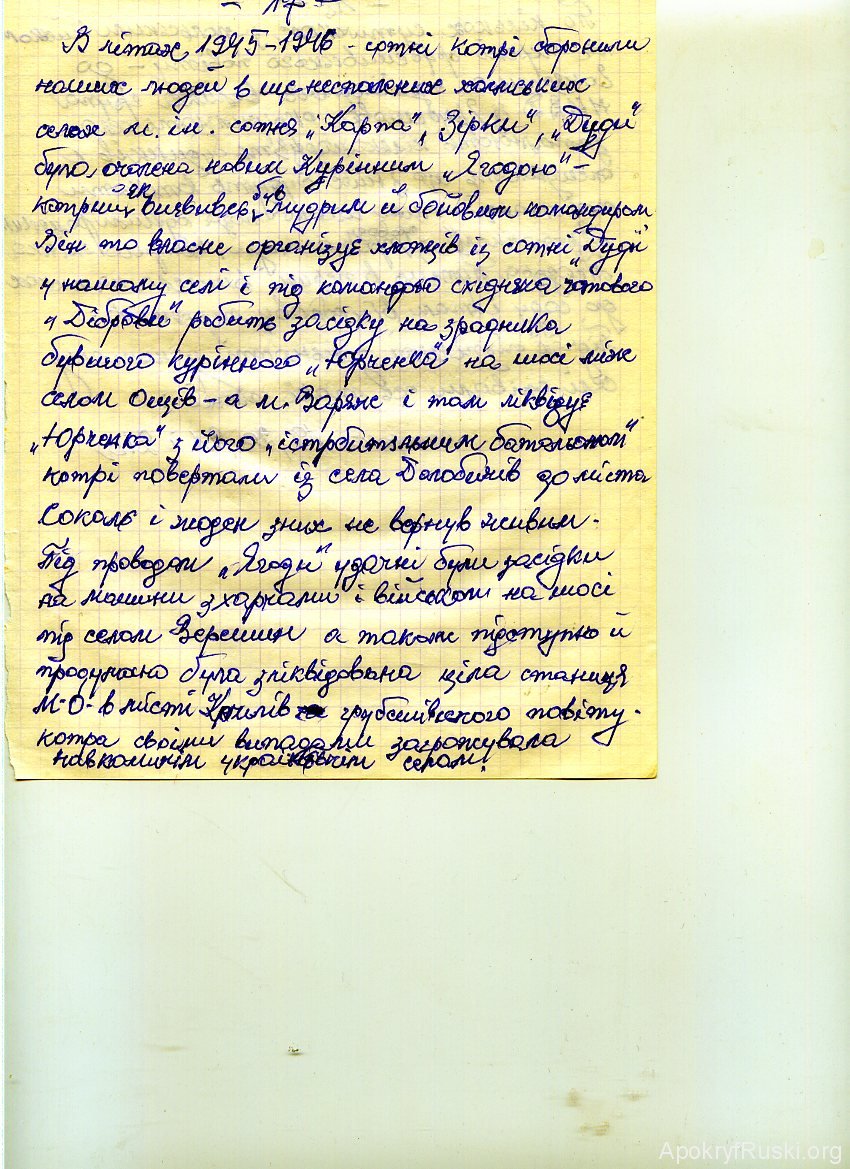 - 17 -
В літах 1945-1946 - сотні котрі боронили
наших людей в ще неспалених холмських
селах м. ін. сотня „Карпа", Зірки", „Дуди"
була очолена новим Курінним „Ягодою" -
котрий як виявивсь був мудрим й бойовим командиром
Він то власне організує хлопців із сотні „Дуди"
у нашому селі і під командою східняка чотового
„Діброви" робить засідку на зрадника
бувшого курінного „Юрченка" на шосі між
селом Ощів - а м. Варяж і там ліквідує
„Юрченка" з його „істребительним батальоном"
котрі повертали із села Долобичів до міста
Сокаль і жоден з них не вернув живим.
Під проводом „Ягоди" удачні були засідки
на машини з харчами і військом на шосі
під селом Верешин а також підступно й
продумано була зліквідована ціла станиця
М-О- в місті Крилів грубешівского повіту.
котра своїми випадами загрожувала
навколишнім українським селам.
ApokryfRuski.org